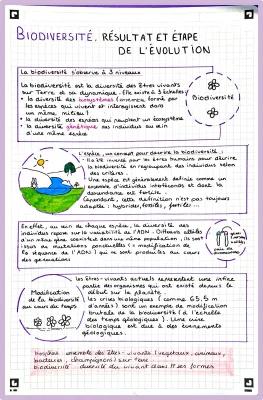 BIODIVERSITÉ. RÉSULTAT ET ÉTAPE
DE L'ÉVOLUTION
La biodiversité s'observe à 3 niveaux
La biodiversité est la diversité des êtres vivants
sur Terre et sa dynamique. Elle existe à 3 échelles :
• la diversité des écosystèmes (formé par
les espèces qui vivent et interagissent dans
un même milieu)
• la diversité des espèces qui peuplent un écosystème
• la diversité génétique des individus au sein
d'une même espèce
Biodiversité
L'espèce, un concept pour décrire la biodiversité :
Il a été inventé par les êtres humains pour décrire
la biodiversité en regroupant des individus selon
des critères.
Une espèce est généralement définie comme un
ensemble d'individus interféconds et dont la
descendance est fertile.
Cependant, cette définition n'est pas toujours
adaptée : hybrides, fossiles, ...
En effet, au sein de chaque espèce, la diversité des
individus repose sur la variabilité de l'ADN. Différents allèles
d'un même gène coexistent dans une même population, ils sont
issus de mutations ponctuelles (modification de
la séquence de l'ADN) qui se sont produites au cours
des générations
Modification
de la biodiversité
au cours du temps
les êtres-vivants actuels représentent une infime
partie des organismes qui ont existé depuis le
début sur la planète.
les crises biologiques (comme 65.5 m
d'années) sont un exemple de modification
brutale de la biodiversité (à l'échelle
des temps géologiques). Une crise
biologique est due à des événements
géologiques.
ensemble des êtres-vivants (végétaux, animaux,
bactéries, champignons) sur Terre
biodiversité diversité du vivant dans ses formes